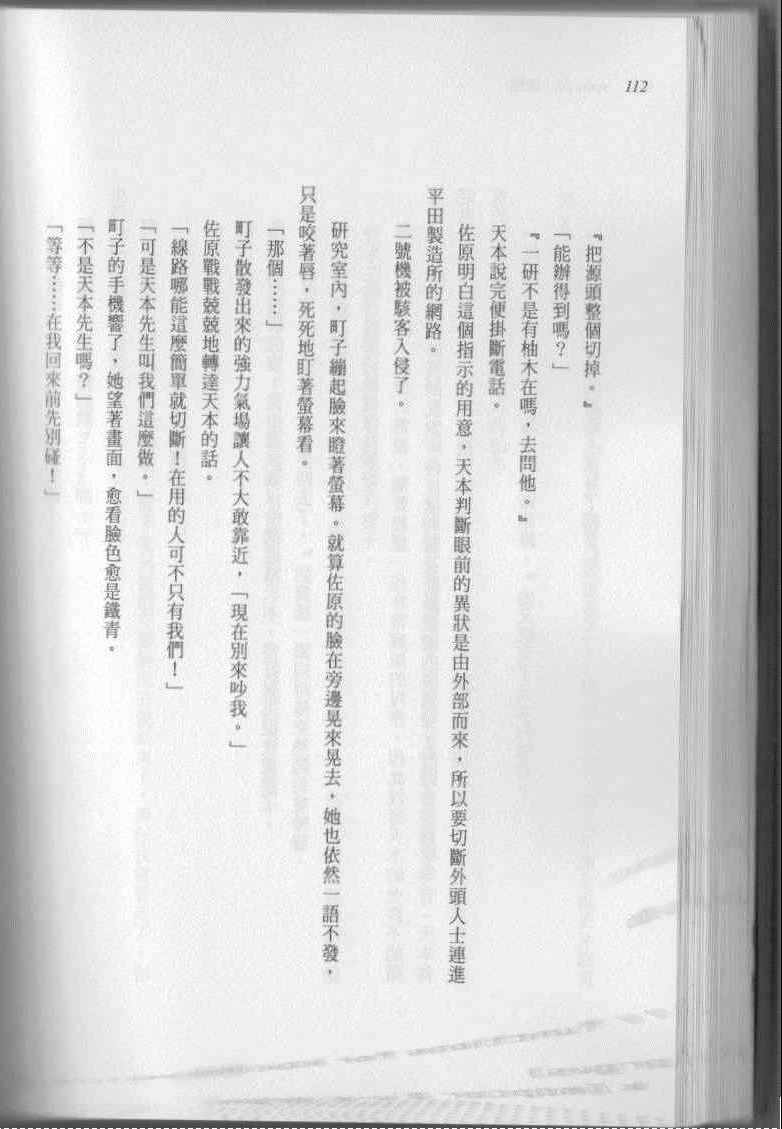 112
『把源頭整個切掉。』
「能辦得到嗎？」
『一研不是有柚木在嗎，去問他。』
天本說完便掛斷電話。
佐原明白這個指示的用意，天本判斷眼前的異狀是由外部而來，所以要切斷外頭人士連進
平田製造所的網路。
二號機被駭客入侵了。
研究室內，町子繃起臉來瞪著螢幕。就算佐原的臉在旁邊晃來晃去，她也依然一語不發，
只是咬著唇，死死地盯著螢幕看。
「那個……」
町子散發出來的強力氣場讓人不大敢靠近，「現在別來吵我。」
佐原戰戰兢兢地轉達天本的話。
「線路哪能這麼簡單就切斷！在用的人可不只有我們！」
「可是天本先生叫我們這麼做。」
町子的手機響了，她望著畫面，愈看臉色愈是鐵青。
「不是天本先生嗎？」
「等等……在我回來前先別碰！」